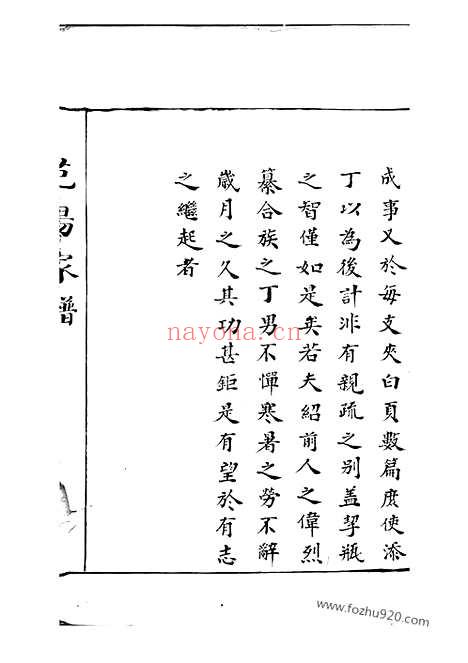 成事又於每支夾白頁數篇庶使添
丁以為後計非有親疏之别盖挈瓶
之智僅如是矣若夫紹前人之偉烈
纂合族之丁男不憚寒暑之勞不辭
歲月之久其功甚鉅是有望於有志
之繼起者
家譜
nayona.cn
www.fozhu920.com